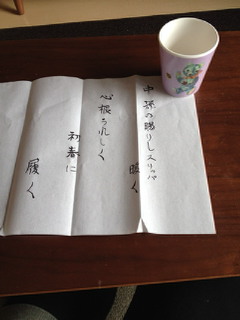 中孫の賜りしスリッパ
暖く
心根うれしく
新春に
履く